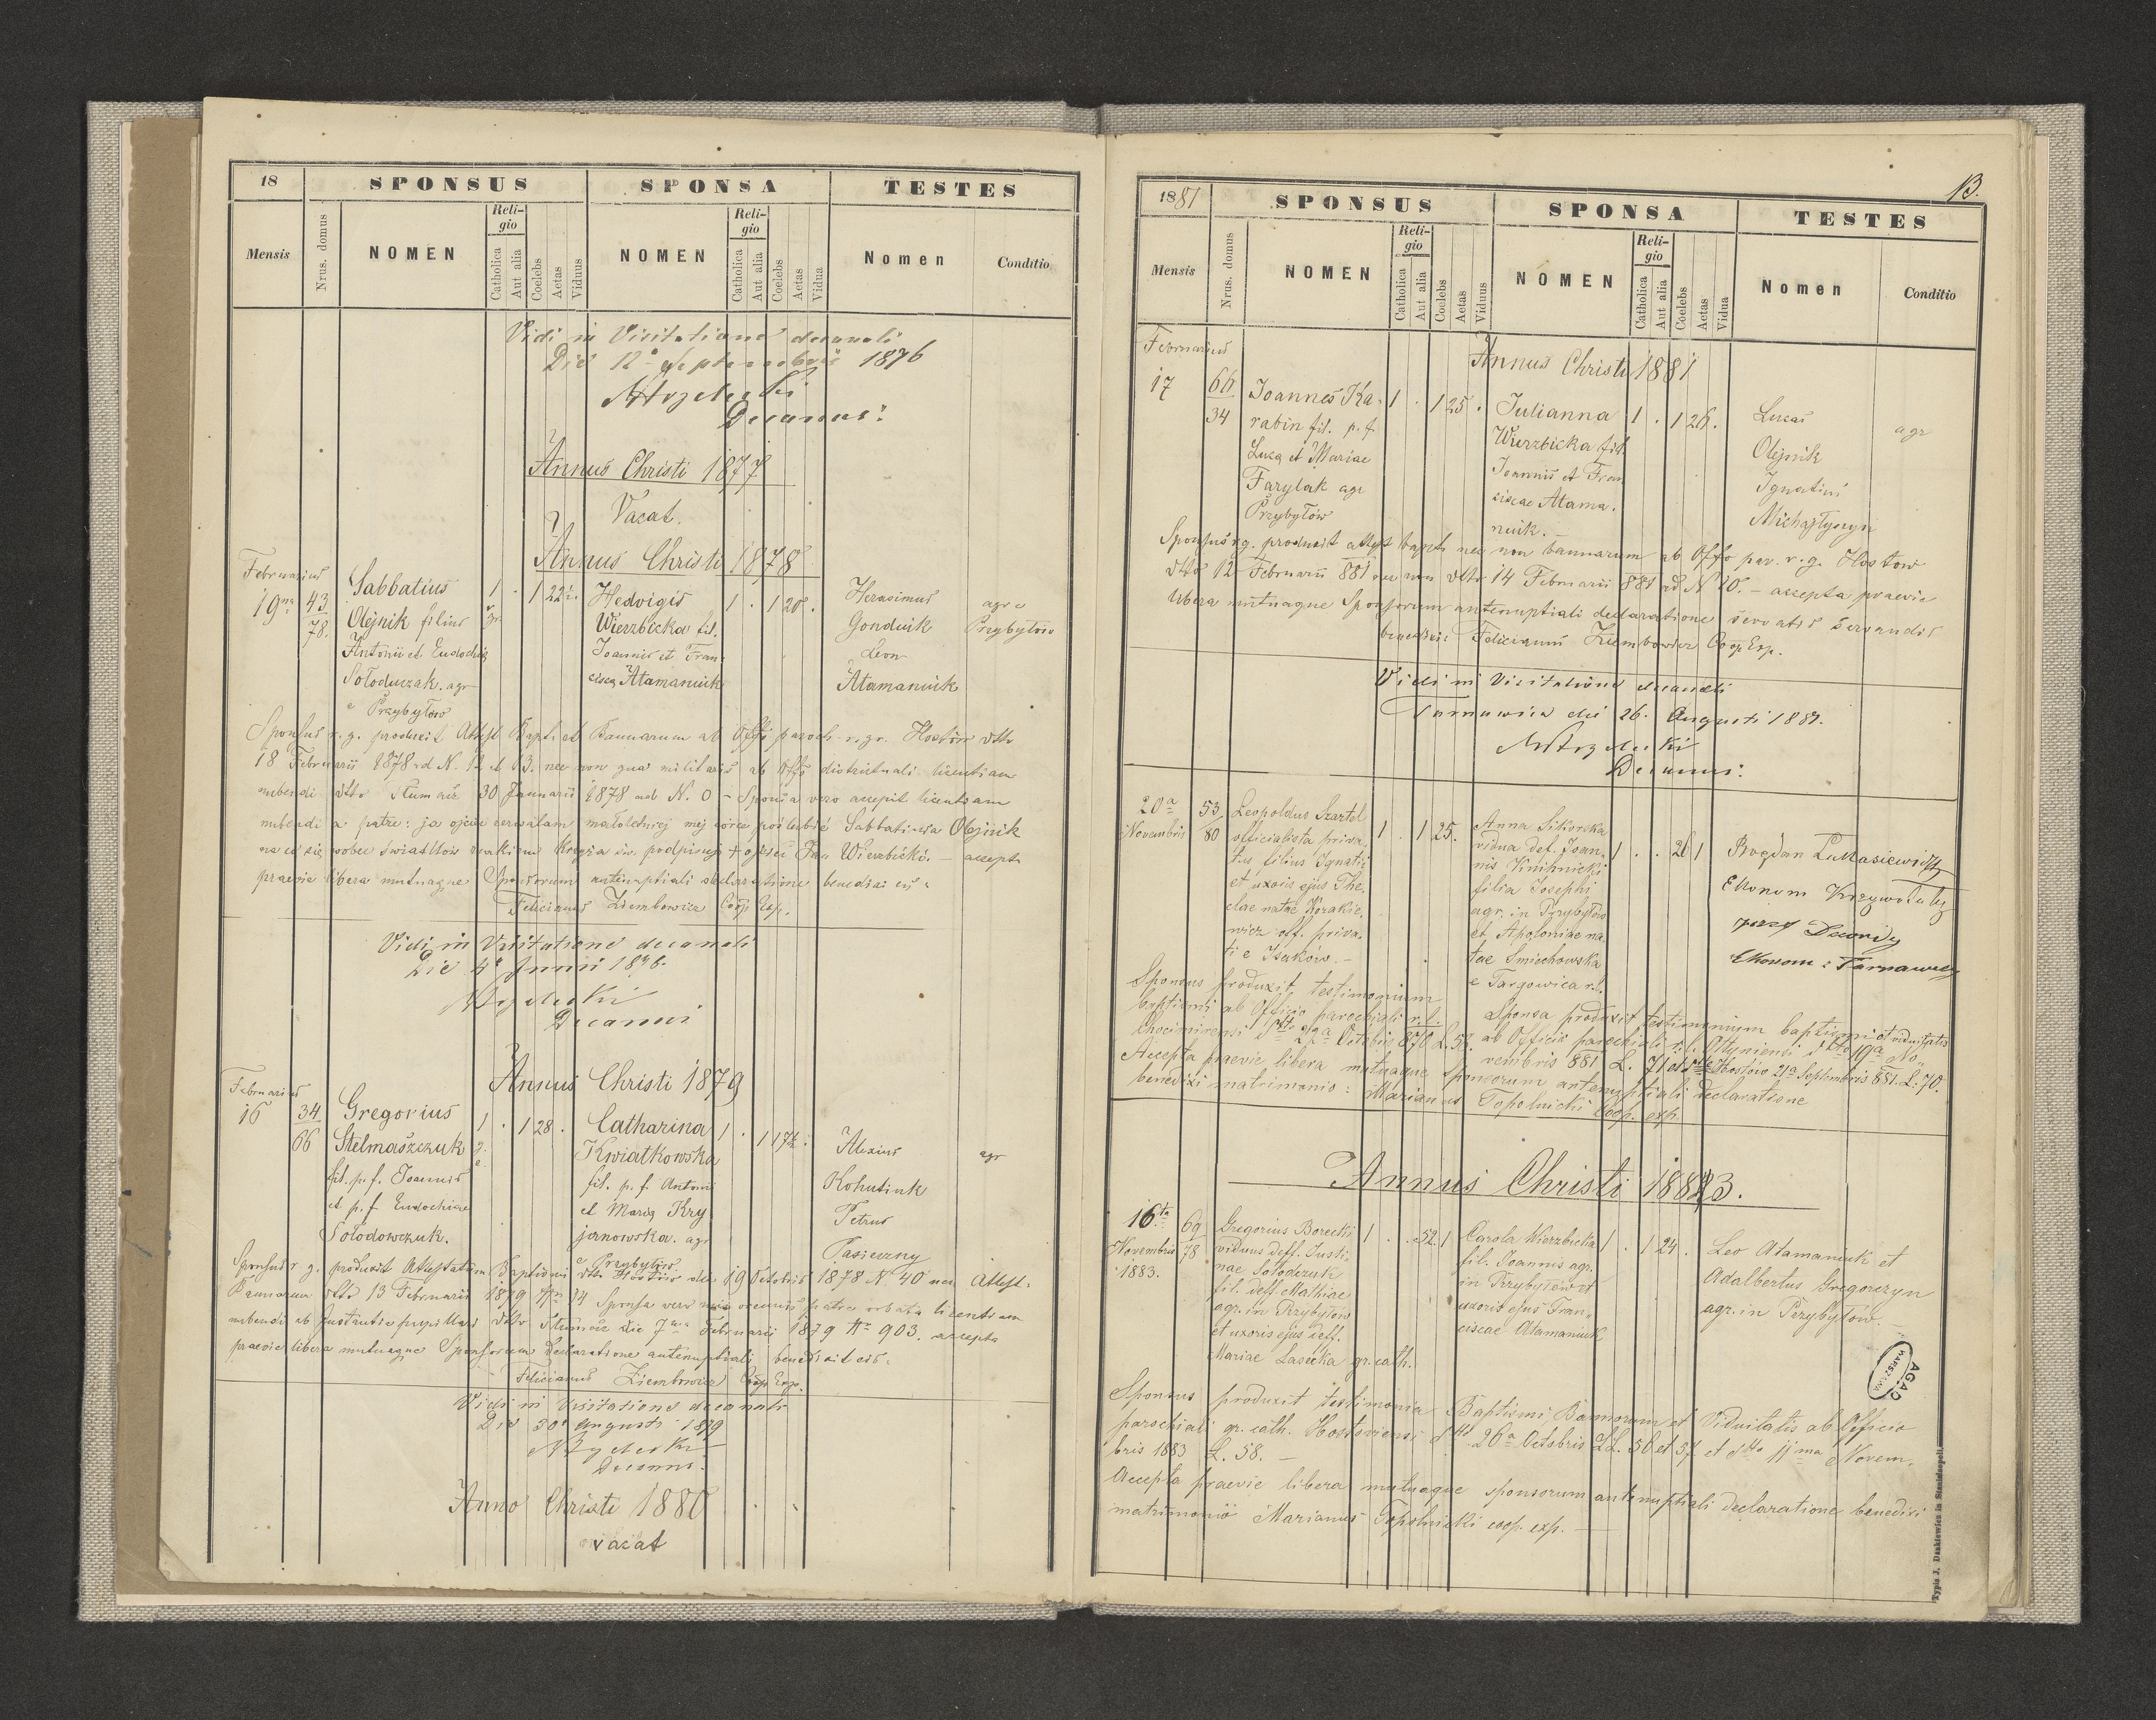 18 SPONSUS SPONSA TESTES
Mensis Nrus. domus NOMEN Religio Catholica Aut alia Coelebs Aetas Viduus NOMEN Religio Catholica Aut alia Coelebs Aetas Vidua Nomen Conditio
Vidi in Visitatione decanali
Die 12 Septembris 1876
Decanus
Annus Christi 1877
Vacat.
Annus Christi 1878
Februarius
19 43 78.
Sabbatius
Olejnik filius
Antonii et Eudochia
Sołoduczak. agr
e Przybyłów
1 . 1 22½
Hedvigis
Wierzbicka fil.
Joannis et Fran
cisca Atamaniuk
1 . 1 20 .
Herasimus
Gonduik
Leon
Atamaniuk
agr e
Przybyłów
Sponsus r. g. produxit Attest Bapti et Bannarum ab Offo paroch. r. gr. Hostów dtto
18 Februarii 1878 ad N. 12 et 13. nec non qua militaris ab Offo districtuali licentiam
nubendi dtto Tłumacz 30 Januarii 1878 ad N. 0 - Sponsa vero accepit licentiam
nubendi a patre: ja ojciec zerwalam małoletniej mej córce poślubić Sabbatiusza Olejnik
na co się wobec świadków znakiem Krzyża św. podpisuję + ojciec Jan Wierzbicki. - accepta
praevie libera mutuaque Sponsorum antenuptiali declaratione benedixi eis
Felicianus Ziembowicz Coop Exp.
Vidi in Visitatione decanali
Die 4 Junii 1878.
Decanus
Annus Christi 1879
Februarius
16 34 66
Gregorius
Stelmaszczuk
fil. p. f. Joannis
et p. f. Eudochiae
Sołodowczuk.
1 . 1 28 .
Catharina
Kwiatkowska
fil. p. f. Antoni
et Maria Kry
janowska. agr
e Przybyłów.
1 . 1 17½
Alexius
Kohutiuk
Petrus
Pasieczny
agr
Sponsus r. g. produxit Attestatum Baptismi dtto Hostów die 19 Octobris 1878 N. 40 nec Attest.
Bannarum dtto 13 Februarii 1879 Nr 14 Sponsa vero patre orbata licentiam
nubendi ab Instantia pupillari dtto Tłumacz die 7ma Februarii 1879 Nr 903. accepta
praevie libera mutuaque Sponsorum Declaratione antenuptiali benedixit eis.
Felicianus Ziembowicz Coop Exp.
Vidi in Visitatione decanali
Die 30 Augusti 1879
Decanus.
Anno Christi 1880
vacat
13.
1881 SPONSUS SPONSA TESTES
Mensis Nrus. domus NOMEN Religio Catholica Aut alia Coelebs Aetas Viduus NOMEN Religio Catholica Aut alia Coelebs Aetas Vidua Nomen Conditio
Annus Christi 1881
Februarius
17 66 34
Joannes Ka-
rabin fil. p. f.
Luca et Mariae
Farylak agr
Przybyłów
1 . 1 25 .
Julianna
Wierzbicka fil
Joannis et Fran
ciscae Atama.
niuk.
1 . 1 26 .
Lucas
Olejnik
Ignatius
Michajłyszyn
agr
Sponsus r. g. produxit attest bapti nec non bannarum ab Offo par. r. g. Hostow
dtto 12 Februarii 881 nec non dtto 14 Februarii 881 ad N 10. - accepta praevie
libera mutuaque Sponsorum antenuptiali declaratione servatis servandis
benedixi: Felicianus Ziembowicz Coop Exp.
Vidi in Visitatione decanali
Tarnawica die 26. Augusti 1881.
Decanus.
20a Novembris
53 80
Leopoldus Szartel
officialista priva.
tus filius Ignatii
et uxoris ejus The.
clae natae Korakie.
wicz off. priva.
ti e Isaków. -
1 . 1 25 .
Anna Sikorska
vidua def. Joan.
nis Knihnicki
filia Josephi
agr. in Przybyłów
et Apoloniae na
tae Smiechowska
e Targowica r. l.
1 . . 26 1
Bogdan Łukasiewicz
Ekonom Krzywotuły
Ekonom: Tarnawicy
Sponsus produxit testimonium
baptismi ab Officio parochiali r. l.
Chocimirensi dtto 27a Octobris 878 L. 52.
Sponsa produxit testimonium baptismi et viduitatis
ab Officii parochiali r. l. Ottyniensi dtto 19a No.
vembris 881 L. 71 et dtto Hostów 21a Septembris 881. L. 70.
Accepta praevie libera mutuaque sponsorum antenuptiali declaratione
benedixi matrimonio: Marianus Topolnicki Coop. exp.
Annus Christi 1883.
16ta Novembris 1883.
69 78
Gregorius Borecki
viduus deff. Justi.
nae Sołodczuk
fil. deff. Mathiae
agr. in Przybyłów
et uxoris ejus deff.
Mariae Lasecka gr. cath.
1 . . 52. 1
Carola Wierzbicka
fil. Joannis agr.
in Przybyłów et
uxoris ejus Fran=
ciscae Atamaniuk
1 . 1 24 .
Leo Atamaniuk et
Adalbertus Gregorczyn
agr. in Przybyłow. -
AGAD
WARSZAWA
Sponsus produxit testimonia Baptismi, Bannorum et Viduitatis ab Officio
parochiali gr. cath. Hostoviensi dtto 26a Octobris LL. 56 et 57 et dtto 11ma Novem.
bris 1883 L. 58. -
Accepta praevie libera mutuaque sponsorum antenuptiali declaratione benedixi
matrimonio Marianus Topolnicki coop. exp. -
Typis J. Dankiewicz in Stanislaopoli.